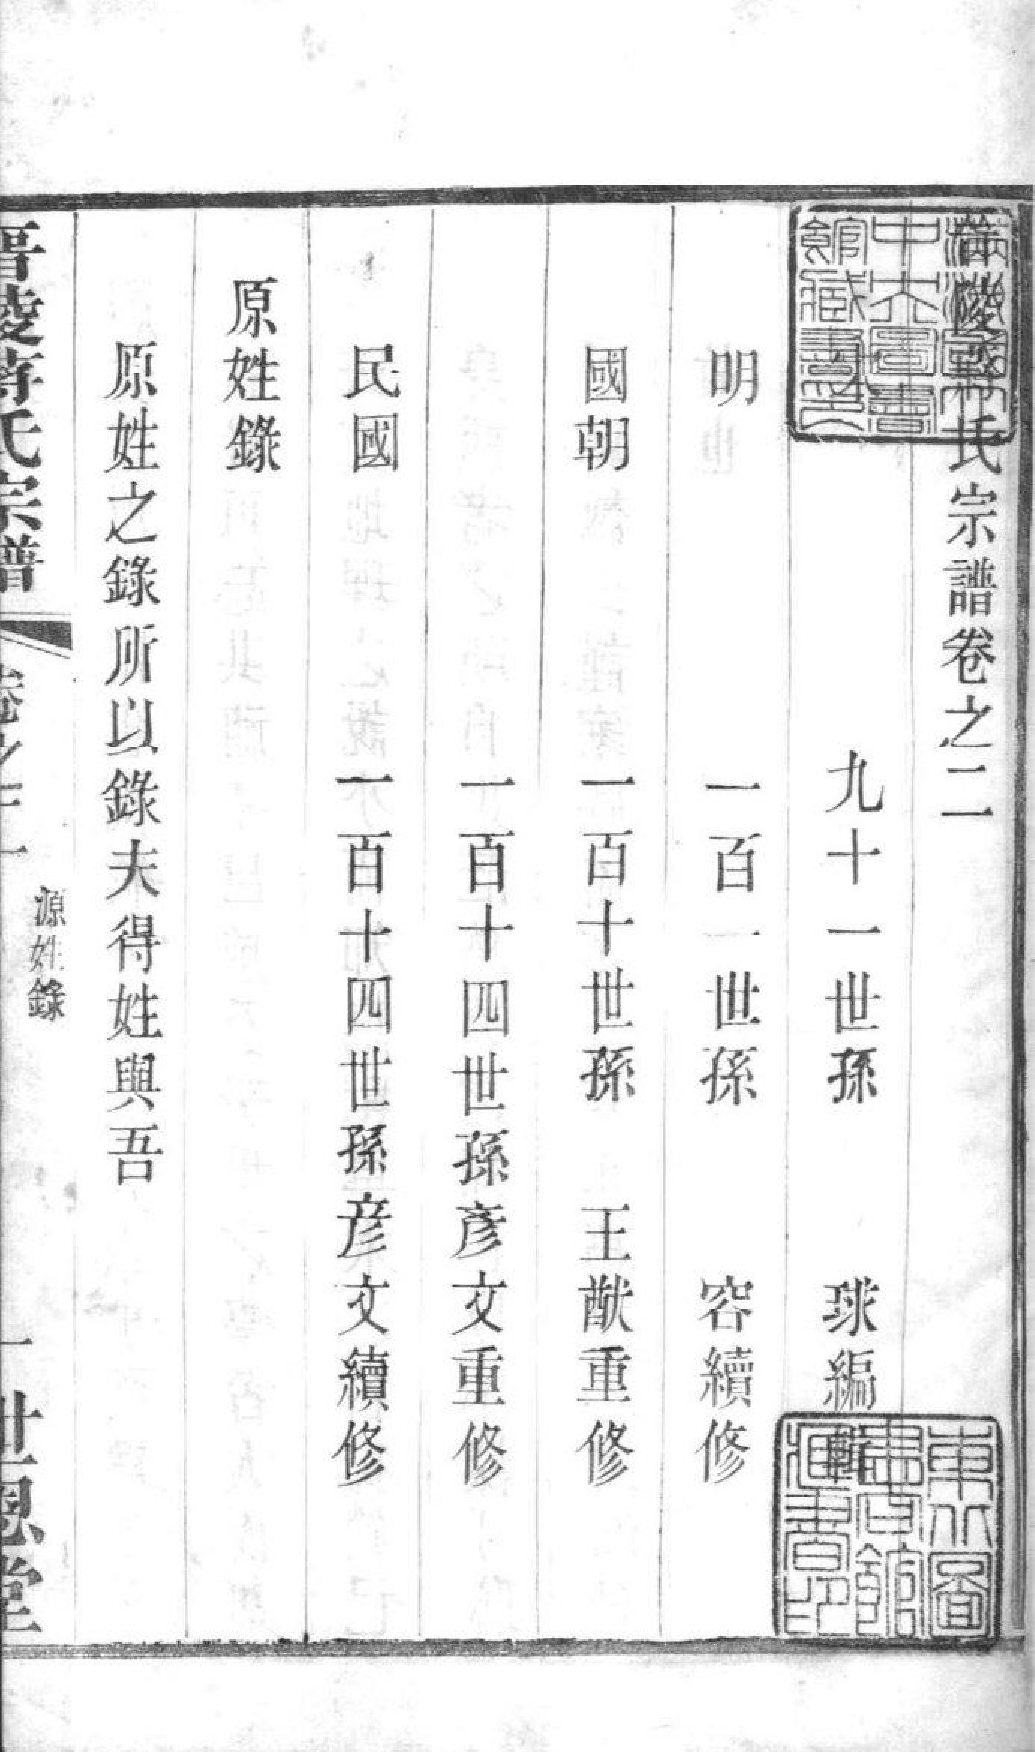 陵蔣氏宗譜卷之二
九十一世孫 球編輯
明 一百一世孫 容續修
國朝 一百十世孫 王猷重修
一百十四世孫彥文重修
民國 一百十四世孫彥文續修
原姓錄
原姓之錄所以錄夫得姓與吾
晋陵蔣氏宗譜
卷之二
源姓錄
一
世恩堂
東北圖
書館
藏書印